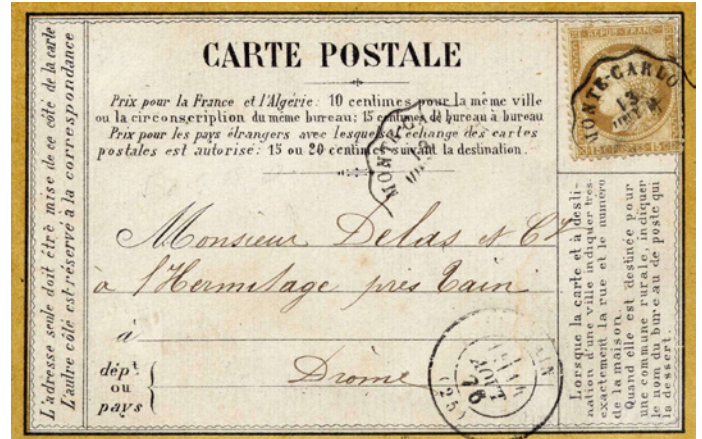 L'adresse seule doit être mise de ce côté de la carte
L'autre côté est réservé à la correspondance
CARTE POSTALE
Prix pour la France et l'Algérie: 10 centimes pour la même ville
ou la circonscription du même bureau; 15 centimes de bureau à bureau
Prix pour les pays étrangers avec lesquels l'échange des cartes
postales est autorisé: 15 ou 20 centimes suivant la destination.
REPUB FRANC
MONTE-CARLO
13
MONTE-C
Monsieur Delas et Cie
à l'Hermitage près Tain
à
dépt
ou
pays
Drôme
AOUT
76
(25)
Lorsque la carte est à desti-
nation d'une ville indiquer très-
exactement la rue et le numéro
de la maison.
Quand elle est destinée pour
une commune rurale, indiquer
le nom du bureau de poste qui
la dessert.